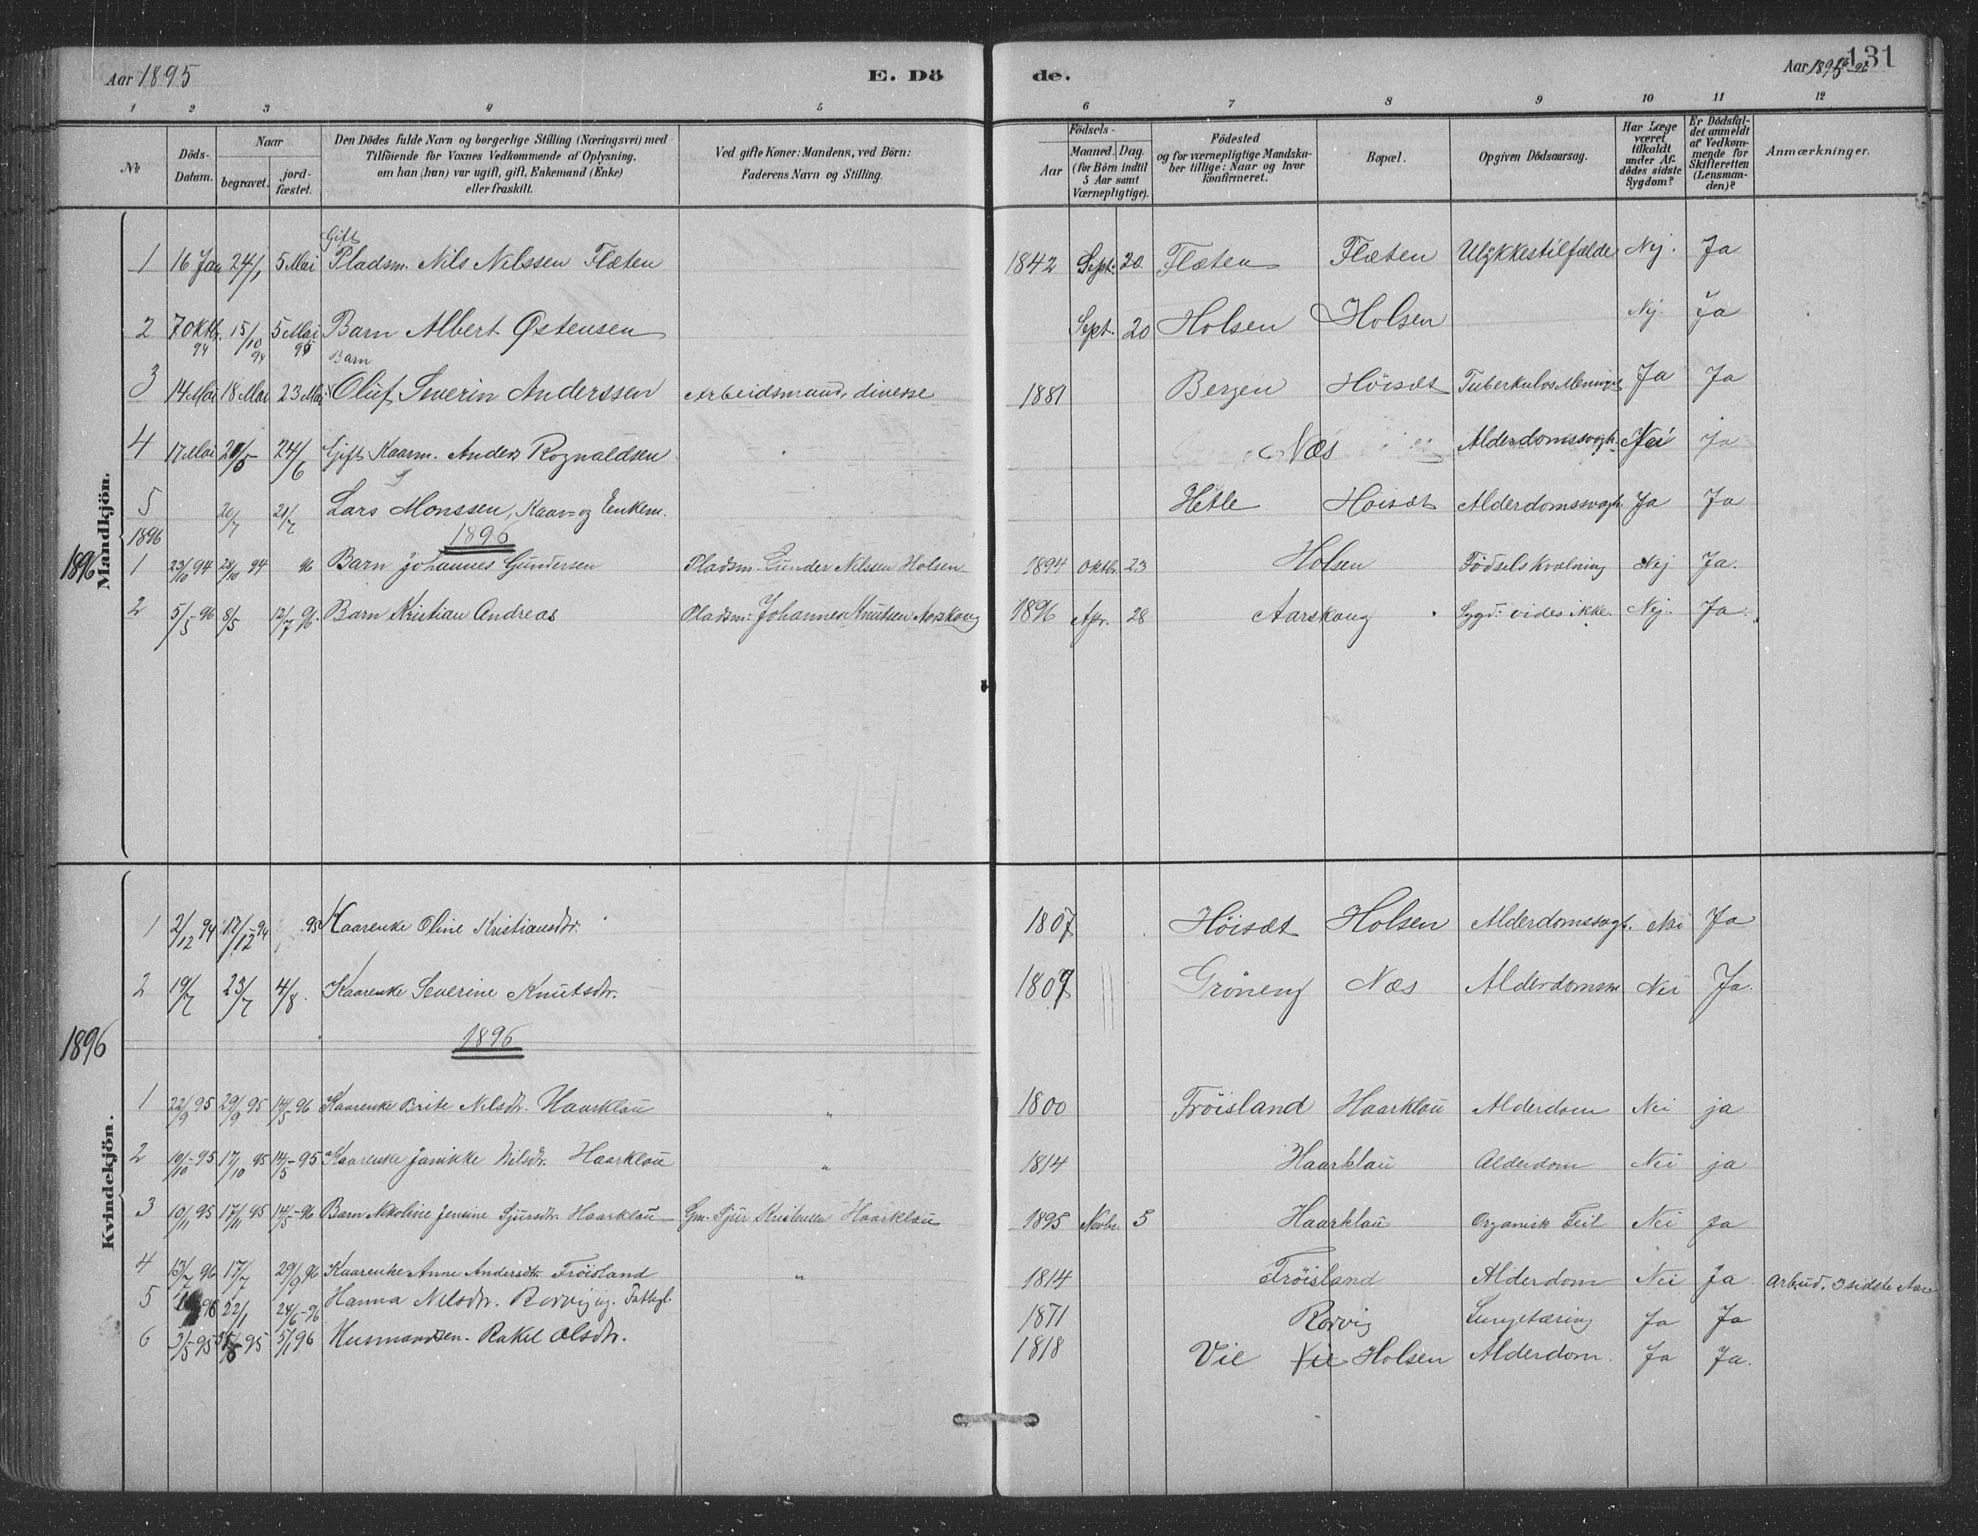 Aar 1895 E. Dö de. Aar 1895-96 131
1 2 3 4 5 6 7 8 9 10 11 12
No Döds-Datum. Naar begravet. jord-fæstet. Den Dödes fulde Navn og borgerlige Stilling (Næringsvei) med Tilföiende for Voxnes Vedkommende af Oplysning. om han (hun) var ugift, gift, Enkemand (Enke) eller fraskilt. Ved gifte Koner: Mandens, ved Börn: Faderens Navn og Stilling. Födsels- Aar Maaned. Dag (for Börn indtil 5 Aar samt Værnepligtige). Födested og for værnepligtige Mandska-ber tillige: Naar og hvor konfirmeret. Bopæl. Opgiven Dödsaarsag. Har Læge været tilkaldt under Af-dödes sidste Sygdom? Er Dödsfal-det anmeldt af Vedkom-mende for Skifteretten (Lensman-den)? Anmærkninger.
Mandkjön.
1 16 Jan 24/1 5 Mai Gift Pladsm. Nils Nilssen Flæten 1842 Sept. 20 Flæten Flæten Ulykkestilfælde Nej. Ja
2 7 Oktb. 94 15/10 94 5 Mai 95 Barn Albert Østensen Sept. 20 Holsen Holsen Nej. Ja
3 14 Mai 18 Mai 23 Mai Barn Oluf Severin Anderssen Arbeidsmand, diverse 1881 Bergen Höisæt Ja Ja
4 17 Mai 24/6 Gift Kaarm. Anders Rognaldsen Næs Alderdomssvagh. Nei Ja
5 20/7 21/7 Lars Monssen, Kaar- og Enkem. Hetle Höisæt Alderdomssvagh. Ja Ja
1896 1896
1896 1 23/10 94 28/10 94 96 Barn Johannes Gundersen Pladsm. Gunder Nilsen Holsen 1894 Oktb. 23 Holsen Födsels Kvælning Nej Ja.
2 5/5 96 8/5 12/7 96. Barn Kristian Andreas Pladsm: Johannes Knutsen Aarskaug 1896 Apr. 28 Aarskaug Sygd: vides ikke. Nej. Ja.
Kvindekjön.
1 2/12 94 17/12-94 95 Kaarenke Oline Kristiansdtr. 1807 Höisæt Holsen Alderdomssvagh. Nei Ja
2 19/7 23/7 4/8. Kaarenke Severine Knutsdtr. 1809 Gröneng Næs Alderdomssv Nei Ja.
1896 1896
1 22/9 95 29/9 95 14/5-96 Kaarenke Brite Nilsdtr. Haarklau " 1800 Fröisland Haarklau Alderdom Nei ja
2 10/10-95 17/10 95 14/5-95 Kaarenke Janikke Nilsdtr. Haarklau " 1814 Haarklau Alderdom Nei ja
3 10/11 95 17/11 95 14/5-96 Barn Nikoline Jensine Sjursdtr. Haarklau Gm. Sjur Haarklau 1895 Novbr. 5 Haarklau Organisk Feil Nei Ja
4 13/7 96 17/7 29/9 96 Kaarenke Anne Andersdtr. Fröisland " 1814 Fröisland Alderdom Nei Ja. Arbud. 3 sidste Aar
5 96 22/1 24/6-96 Hanna Nilsdtr. Rörvig ug. Fattigl. 1871 Rörvig Lungetæring Ja Ja
6 3/5-95 95 5/1 96 Rakel Olsdtr. 1818 Vie Vie Holsen Alderdom. Ja Ja.